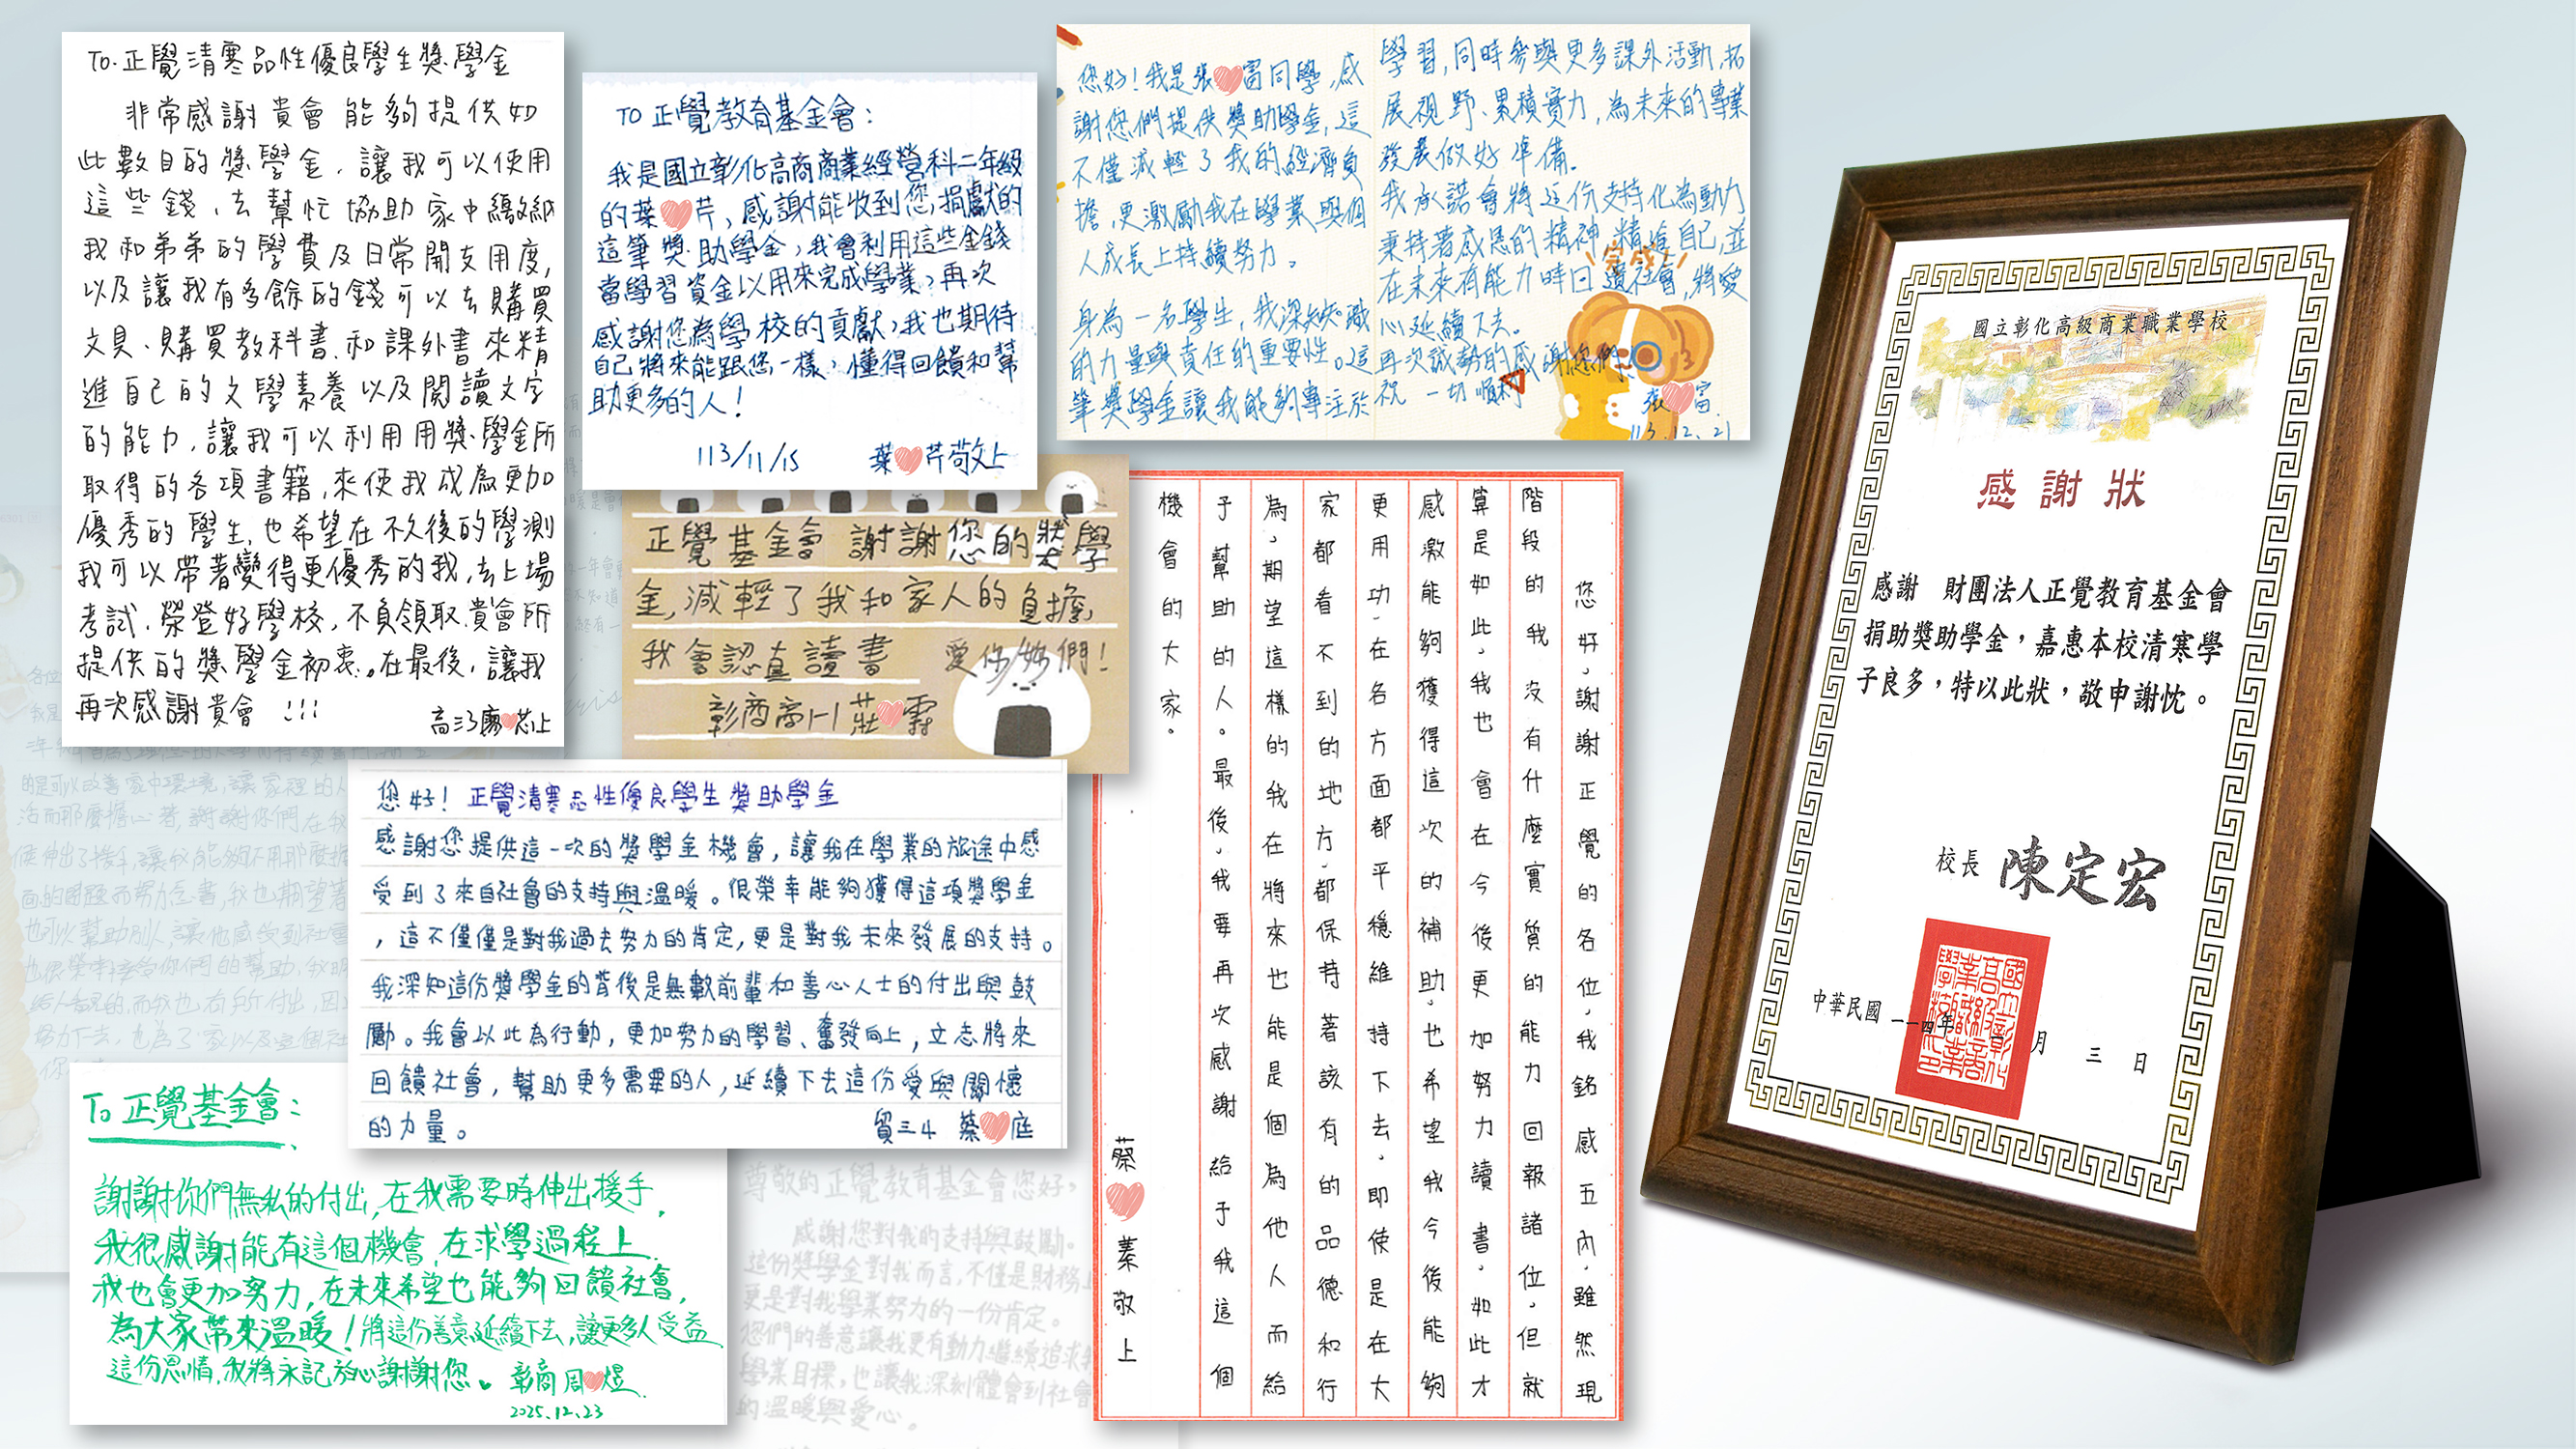 To. 正覺清寒品性優良學生獎學金
非常感謝貴會能夠提供如
此數目的獎學金，讓我可以使用
這些錢，去幫忙協助家中繳納
我和弟弟的學費及日常開支用度，
以及讓我有多餘的錢可以去購買
文具、購買教科書、和課外書來精
進自己的文學素養以及閱讀文字
的能力，讓我可以利用用獎學金所
取得的各項書籍，來使我成為更加
優秀的學生，也希望在不久後的學測
我可以帶著變得更優秀的我，去上場
考試，榮登好學校，不負領取貴會所
提供的獎學金初衷。在最後，讓我
再次感謝貴會 !!!
高三3廖 芯上
TO 正覺教育基金會：
我是國立彰化高商商業經營科二年級
的葉 芹，感謝能收到您捐獻的
這筆獎助學金，我會利用這些金錢
當學習資金以用來完成學業，再次
感謝您為學校的貢獻，我也期待
自己將來能跟您一樣，懂得回饋和幫
助更多的人！
113/11/15 葉 芹敬上
您好！我是張 富同學，感
謝您們提供獎助學金，這
不僅減輕了我的經濟負
擔，更激勵我在學業與個
人成長上持續努力。
身為一名學生，我深知知識
的力量與責任的重要性。這
筆獎學金讓我能夠專注於
學習，同時參與更多課外活動，拓
展視野、累積實力，為未來的專業
發展做好準備。
我承諾會將這份支持化為動力
秉持著感恩的精神，精進自己，並
在未來有能力時回饋社會，將愛
心延續下去。
再次誠摯的感謝您們！
祝 一切順利
張 富
113.12.21
完成
正覺基金會 謝謝您的獎學
金，減輕了我和家人的負擔，
我會認真讀書 愛你們！
彰商商一1 莊 霨
您好！正覺清寒品性優良學生獎助學金
感謝您提供這一次的獎學金機會，讓我在學業的旅途中感
受到了來自社會的支持與溫暖。很榮幸能夠獲得這項獎學金
，這不僅僅是對我過去努力的肯定，更是對我未來發展的支持。
我深知這份獎學金的背後是無數前輩和善心人士的付出與鼓
勵。我會以此為行動，更加努力的學習、奮發向上，立志將來
回饋社會，幫助更多需要的人，延續下去這份愛與關懷
的力量。
貿三4 蔡 庭
To 正覺基金會：
謝謝你們無私的付出，在我需要時伸出援手，
我很感謝能有這個機會，在求學過程上
我也會更加努力，在未來希望也能夠回饋社會，
為大家帶來溫暖！將這份善意延續下去，讓更多人受益
這份恩情，我將永記於心謝謝您。
彰商周 煜
2025.12.23
尊敬的正覺教育基金會您好，
感謝您對我的支持與鼓勵。
這份獎學金對我而言，不僅是財務上
更是對我學業努力的一份肯定。
您們的善意讓我更有動力繼續追求我
學業目標，也讓我深刻體會到社會
的溫暖與愛心。
您好，謝謝正覺的各位，我銘感五內，雖然現
階段的我沒有什麼實質的能力回報諸位，但就
算是如此，我也會在今後更加努力讀書，如此才
感激能夠獲得這次的補助，也希望我今後能夠
更用功，在各方面都平穩維持下去，即使是在大
家都看不到的地方，都保持著該有的品德和行
為，期望這樣的我在將來也能是個為他人而給
予幫助的人。最後，我要再次感謝給予我這個
機會的大家。
蔡 蓁敬上
國立彰化高級商業職業學校
感謝狀
感謝 財團法人正覺教育基金會
捐助獎助學金，嘉惠本校清寒學
子良多，特以此狀，敬申謝忱。
校長 陳定宏
中華民國一一四年 月三日